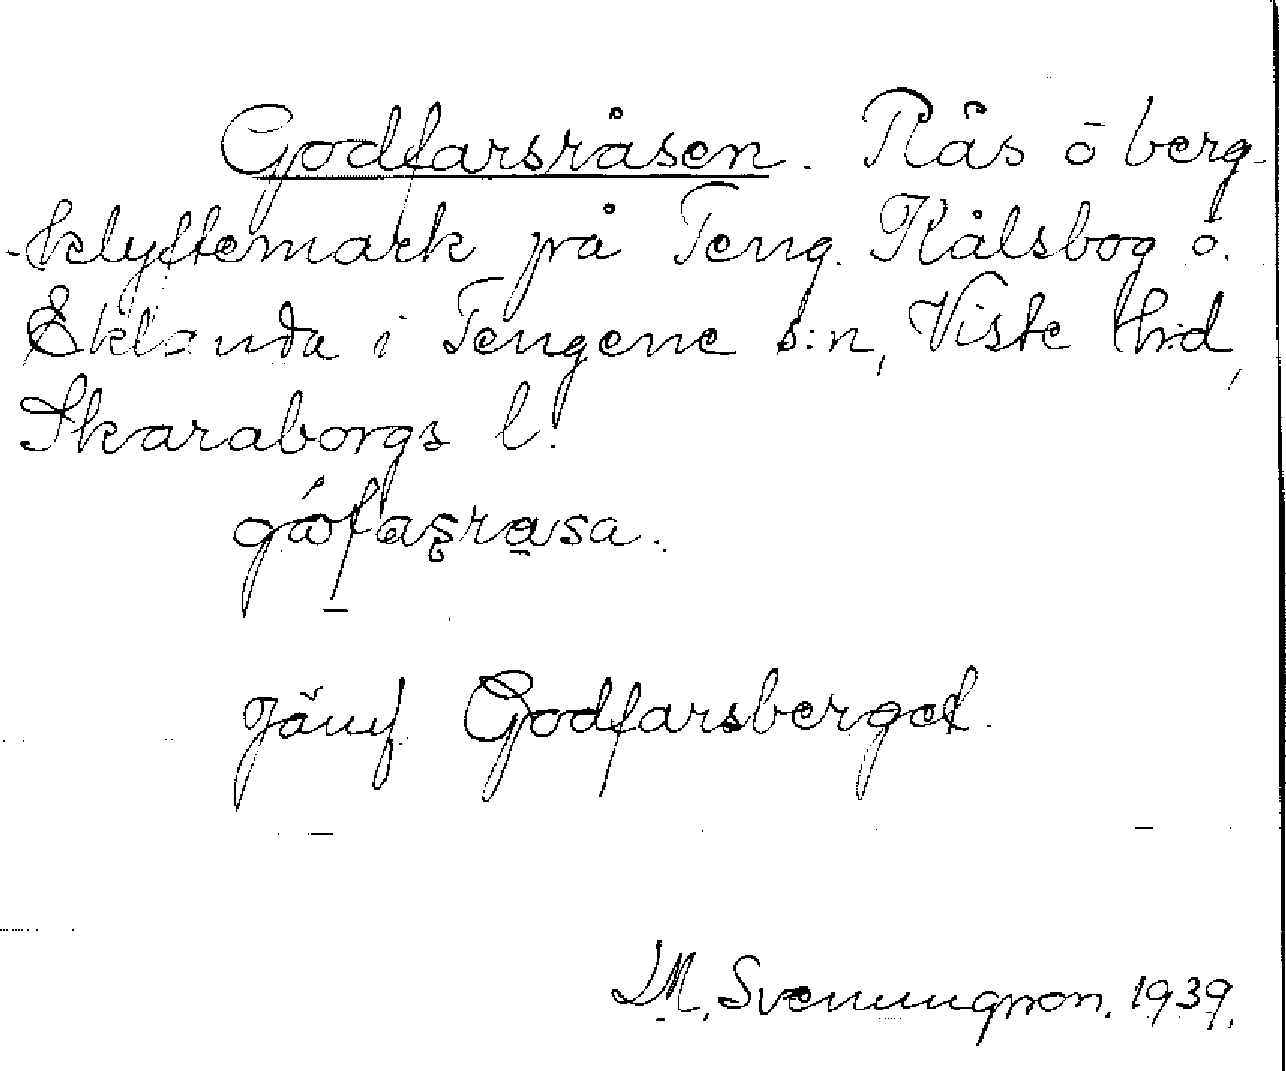 Godfarsråsen. Rås o berg-
-klyftemark på Teng. Kålsbog o.
Eklanda i Tengene s:n, Viste hrd,
Skaraborgs l.
gófasrasa.
Jämf Godfarsberget.
I.M. Svenungsson. 1939.